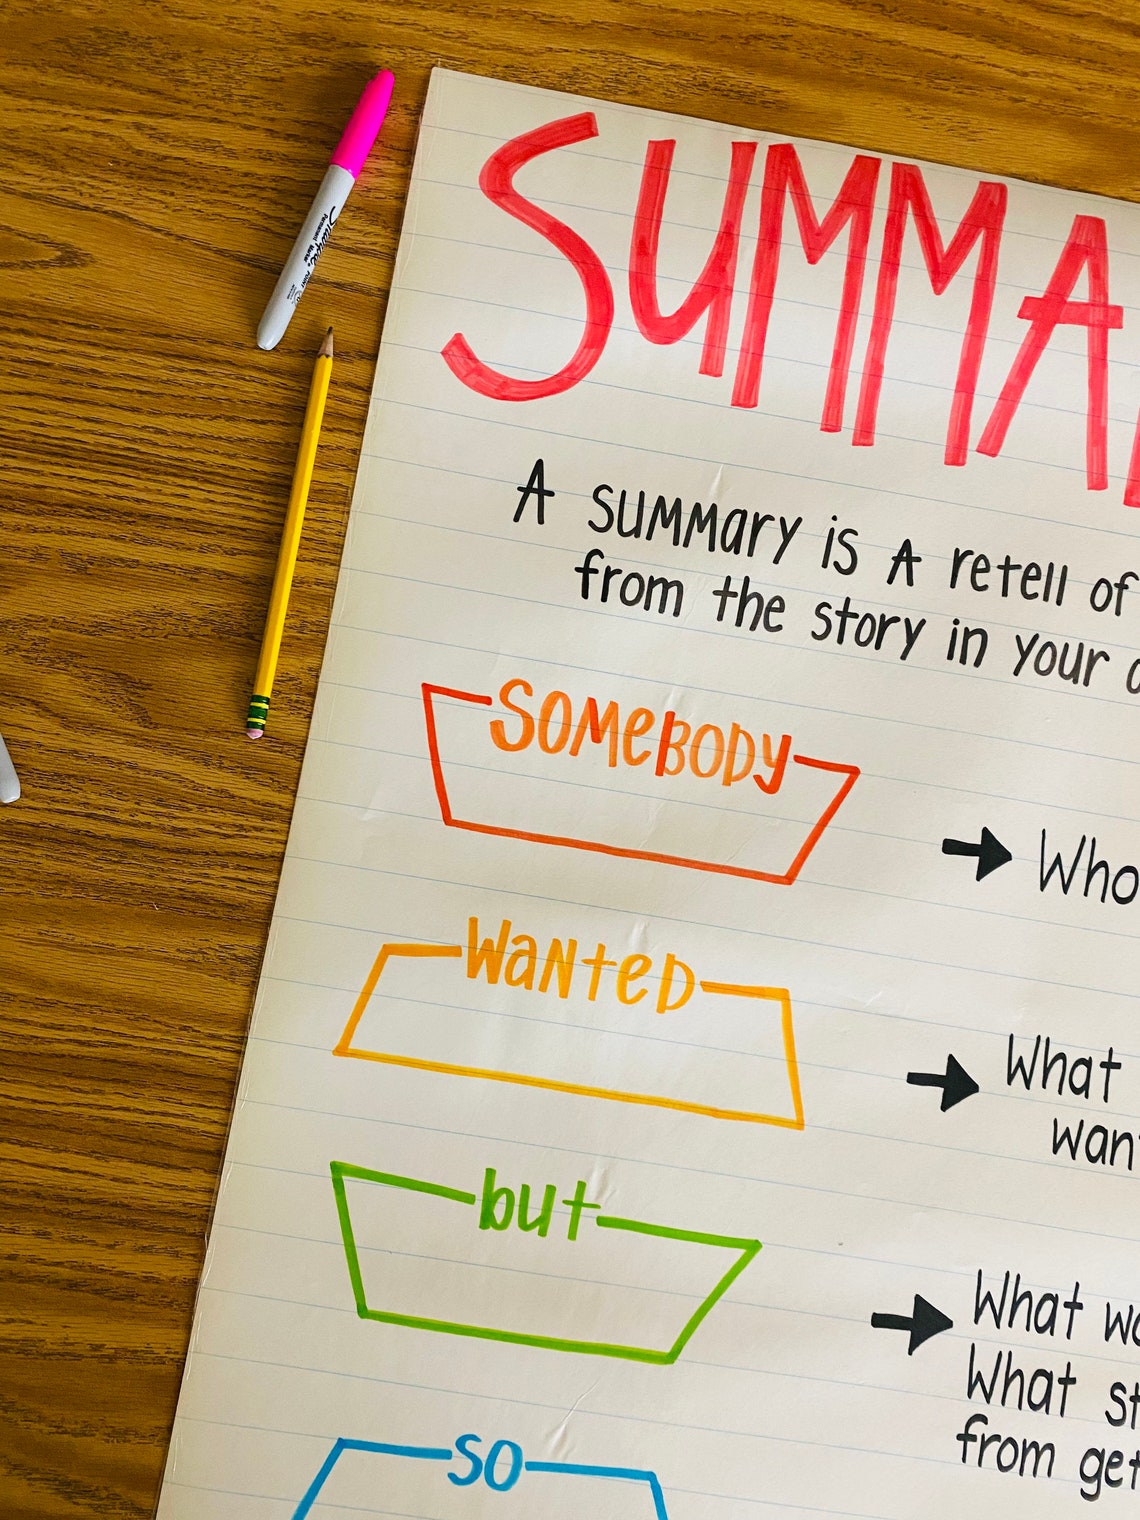 SUMMA
A summary is a retell of
from the story in your
SOMEBODY
Who
WANTED
What
want
but
What
What
from
so
Sharpie